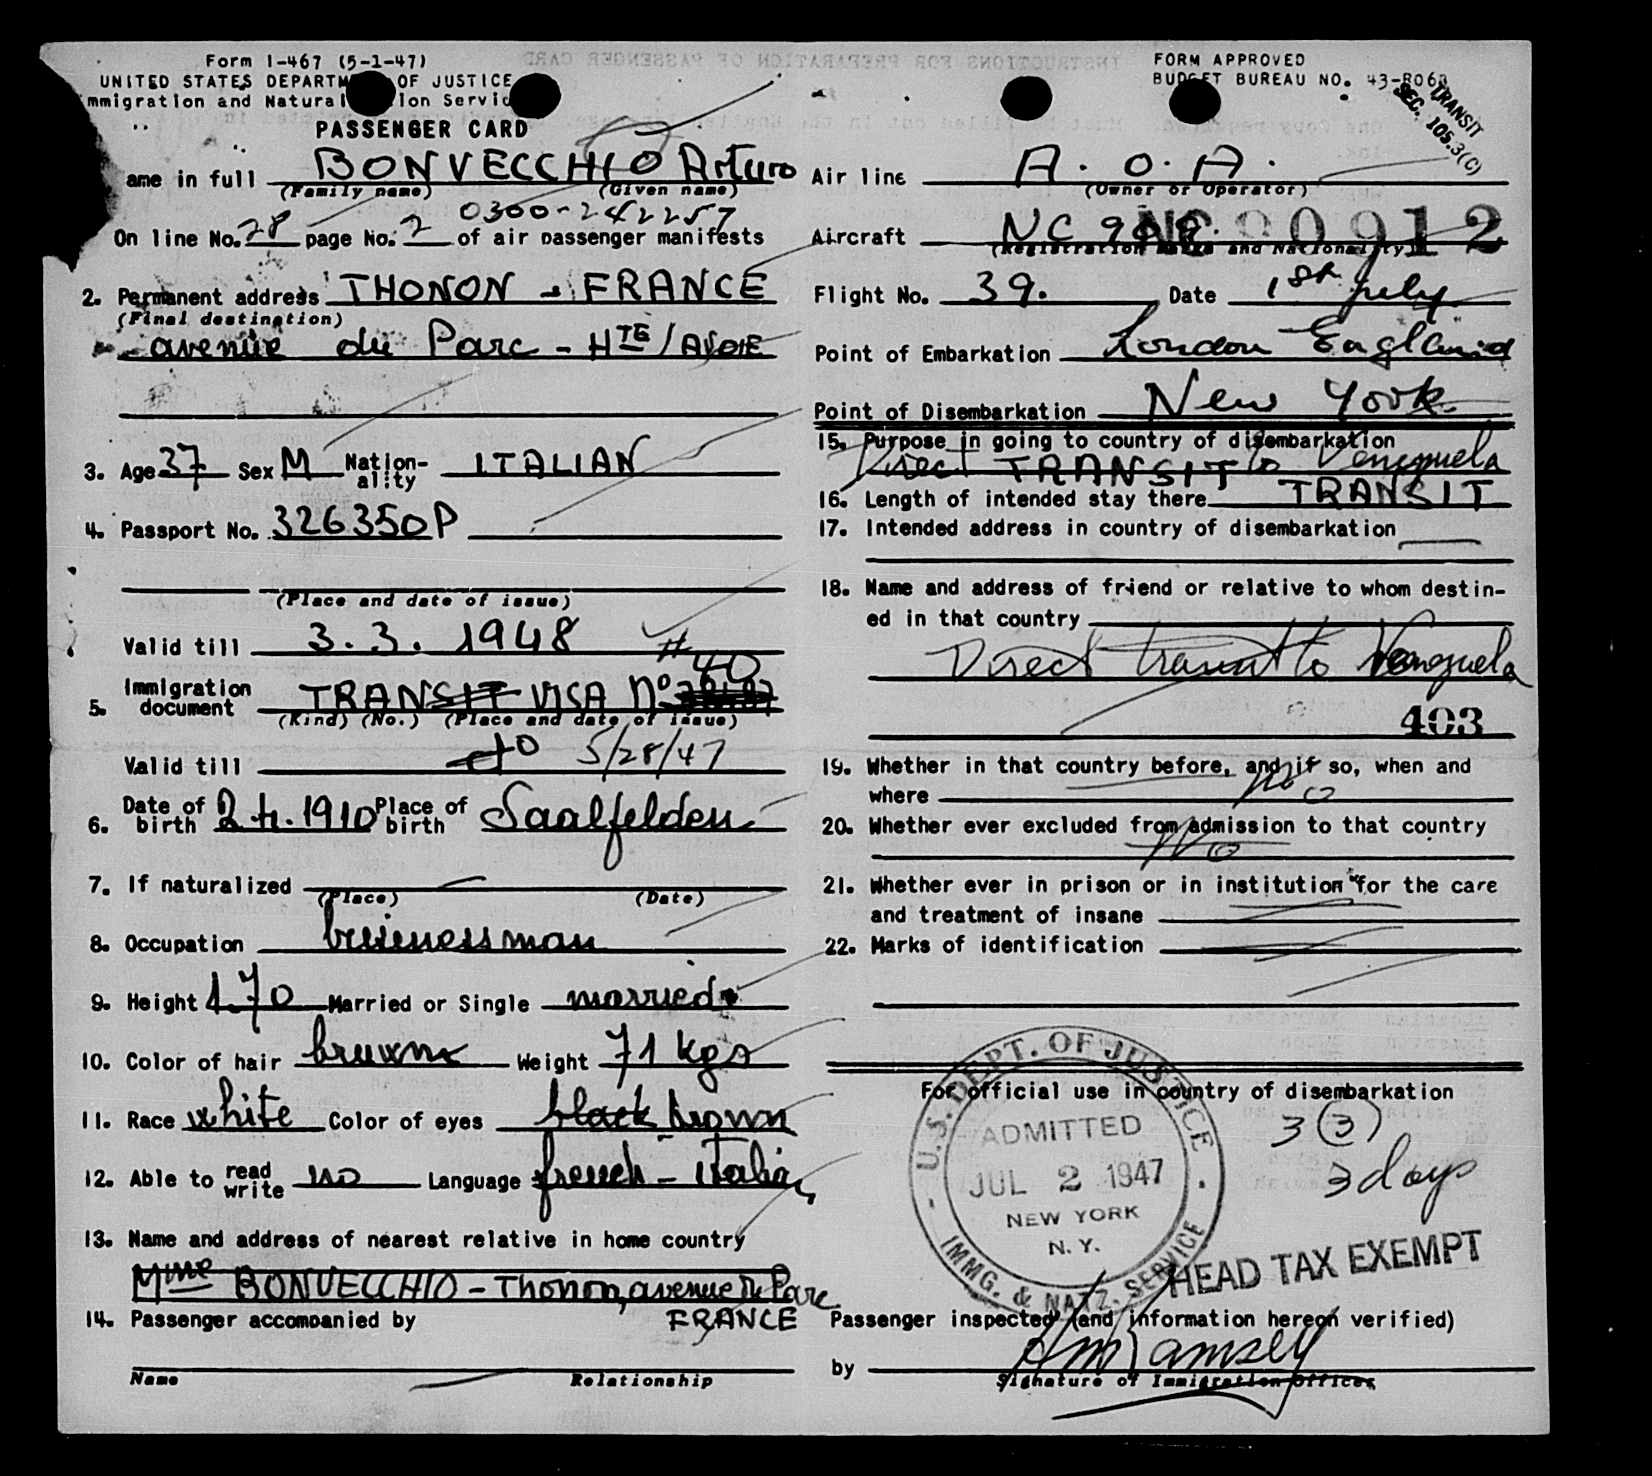 Form I-467 (5-1-47)
UNITED STATES DEPARTM OF JUSTICE
mmigration and Natural ion Servic
PASSENGER CARD
FORM APPROVED
BUDGET BUREAU NO. 43-R068
TRANSIT
SEC. 105.3(C)
ame in full BONVECCHIO Arturo
(Family name) (Given name)
0300-242257
On line No. 28 page No. 2 of air passenger manifests
2. Permanent address THONON - FRANCE
(Final destination)
avenue du Parc - HTE/
3. Age 37 Sex M Nation-ality ITALIAN
4. Passport No. 326350P
(Place and date of issue)
Valid till 3.3.1948
5. Immigration document TRANSIT VISA No 40
(Kind) (No.) (Place and date of issue)
Valid till 5/28/47
6. Date of birth 2.4.1910 Place of birth Saalfelden
7. If naturalized
(Place) (Date)
8. Occupation businessman
9. Height 1.70 Married or Single married
10. Color of hair brown Weight 71 kgs
11. Race white Color of eyes black brown
12. Able to read write no Language french - italian
13. Name and address of nearest relative in home country
Mme BONVECCHIO - Thonon, avenue du Parc
FRANCE
14. Passenger accompanied by
Name Relationship
Air line A.O.A.
(Owner or Operator)
Aircraft NC 90912
(Registration Marks and Nationality)
Flight No. 39. Date 1st July
Point of Embarkation London England
Point of Disembarkation New York.
15. Purpose in going to country of disembarkation
Direct TRANSIT to Venezuela
16. Length of intended stay there TRANSIT
17. Intended address in country of disembarkation
18. Name and address of friend or relative to whom destin-
ed in that country
Direct transit to Venezuela
403
19. Whether in that country before, and if so, when and
where No
20. Whether ever excluded from admission to that country
No
21. Whether ever in prison or in institution for the care
and treatment of insane
22. Marks of identification
For official use in country of disembarkation
U.S. DEPT. OF JUSTICE
ADMITTED
JUL 2 1947
NEW YORK
N.Y.
IMMG. & NATZ. SERVICE
3 (3)
3 days
HEAD TAX EXEMPT
Passenger inspected (and information hereon verified)
by Ramsey
Signature of Immigration Officer